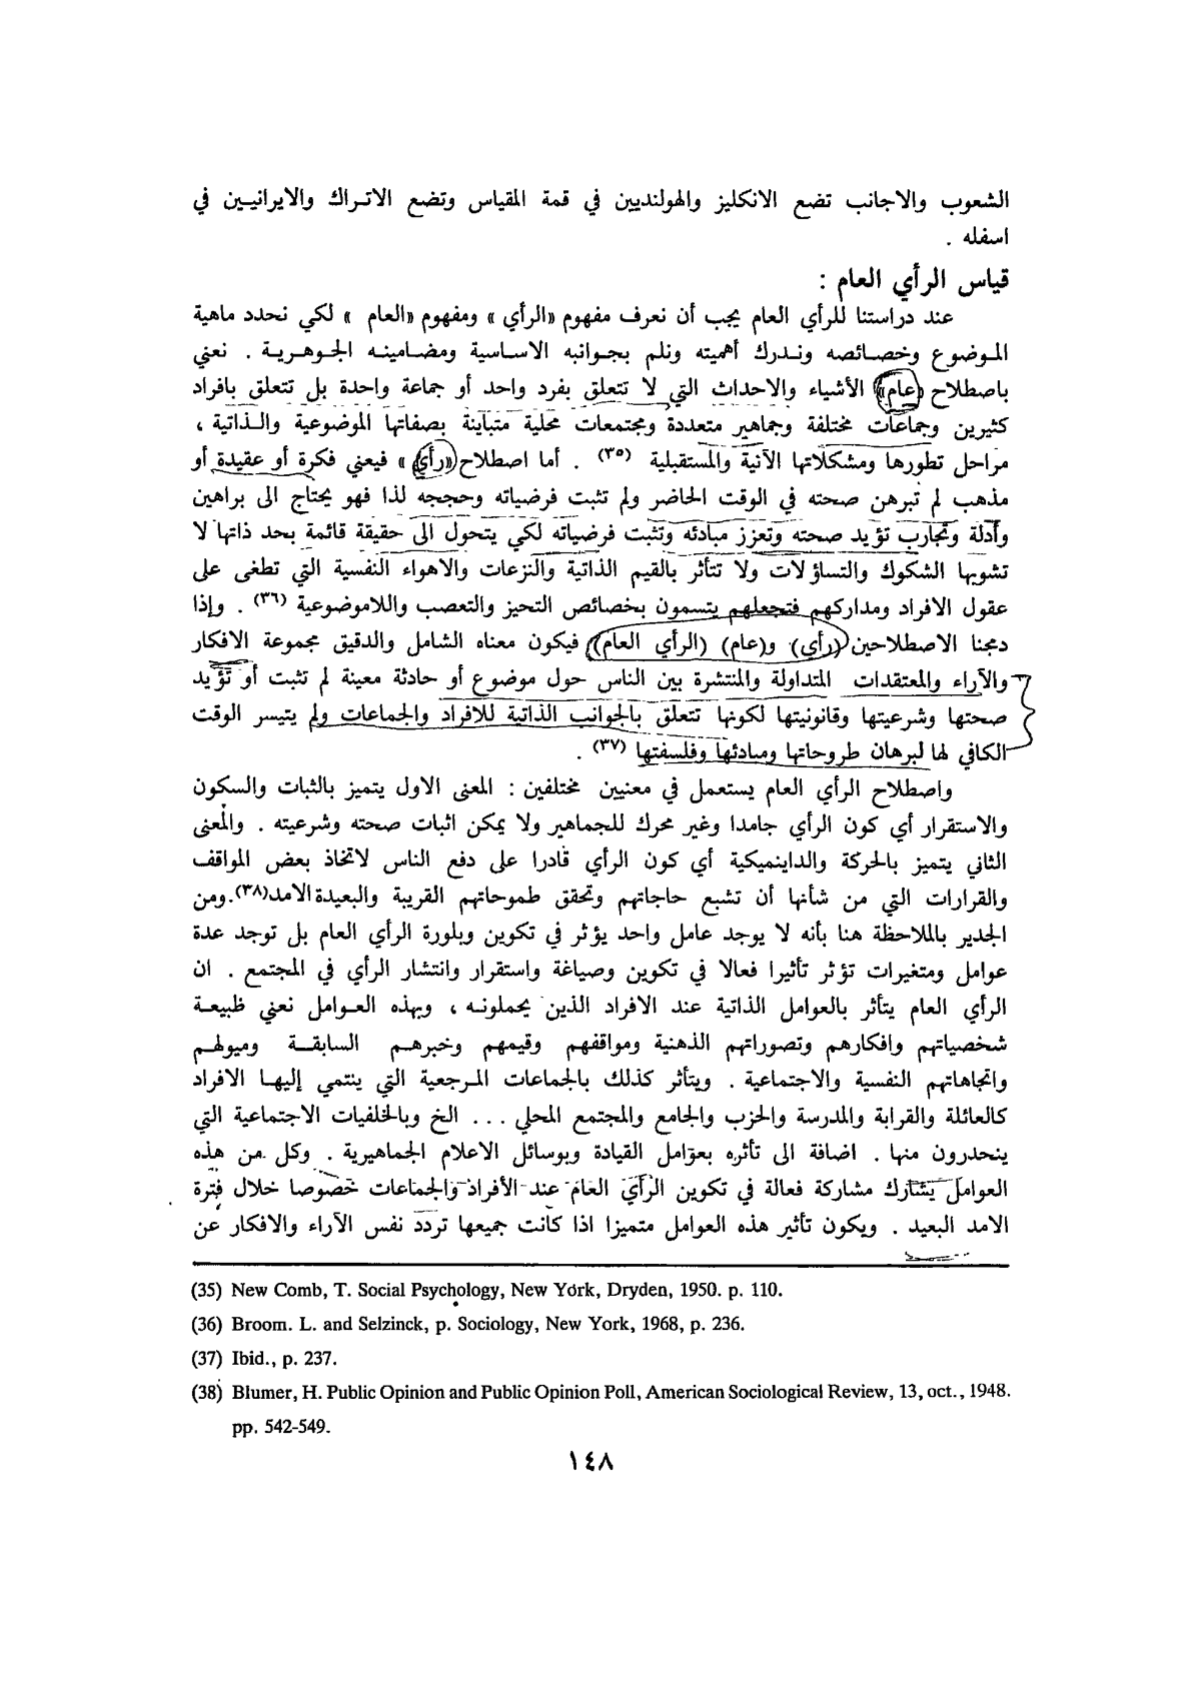 الشعوب والاجانب تضع الانكليز والهولنديين في قمة المقياس وتضع الاتراك والايرانيين في
اسفله .
قياس الرأي العام :
عند دراستنا للرأي العام يجب أن نعرف مفهوم «الرأي» ومفهوم «العام» لكي نحدد ماهية
الموضوع وخصائصه وندرك أهميته ونلم بجوانبه الاساسية ومضامينه الجوهرية . نعني
باصطلاح «عام» الأشياء والاحداث التي لا تتعلق بفرد واحد أو جماعة واحدة بل تتعلق بافراد
كثيرين وجماعات مختلفة وجماهير متعددة ومجتمعات محلية متباينة بصفاتها الموضوعية والذاتية ،
مراحل تطورها ومشكلاتها الآنية والمستقبلية (٣٥) . أما اصطلاح «رأي» فيعني فكرة أو عقيدة أو
مذهب لم تبرهن صحته في الوقت الحاضر ولم تثبت فرضياته وحججه لذا فهو يحتاج الى براهين
وأدلة وتجارب تؤيد صحته وتعزز مبادئه وتثبت فرضياته لكي يتحول الى حقيقة قائمة بحد ذاتها لا
تشوبها الشكوك والتساؤلات ولا تتأثر بالقيم الذاتية والنزعات والاهواء النفسية التي تطغى على
عقول الافراد ومداركهم فتجعلهم يتسمون بخصائص التحيز والتعصب واللاموضوعية (٣٦) . وإذا
دمجنا الاصطلاحين (رأي) و(عام) (الرأي العام) فيكون معناه الشامل والدقيق مجموعة الافكار
والآراء والمعتقدات المتداولة والمنتشرة بين الناس حول موضوع أو حادثة معينة لم تثبت أو تؤيد
صحتها وشرعيتها وقانونيتها لكونها تتعلق بالجوانب الذاتية للافراد والجماعات ولم يتيسر الوقت
الكافي لها لبرهان طروحاتها ومبادئها وفلسفتها (٣٧) .
واصطلاح الرأي العام يستعمل في معنيين مختلفين : المعنى الاول يتميز بالثبات والسكون
والاستقرار أي كون الرأي جامدا وغير محرك للجماهير ولا يمكن اثبات صحته وشرعيته . والمعنى
الثاني يتميز بالحركة والداينميكية أي كون الرأي قادرا على دفع الناس لاتخاذ بعض المواقف
والقرارات التي من شأنها أن تشبع حاجاتهم وتحقق طموحاتهم القريبة والبعيدة الامد(٣٨).ومن
الجدير بالملاحظة هنا بأنه لا يوجد عامل واحد يؤثر في تكوين وبلورة الرأي العام بل توجد عدة
عوامل ومتغيرات تؤثر تأثيرا فعالا في تكوين وصياغة واستقرار وانتشار الرأي في المجتمع . ان
الرأي العام يتأثر بالعوامل الذاتية عند الافراد الذين يحملونه ، وبهذه العوامل نعني طبيعة
شخصياتهم وافكارهم وتصوراتهم الذهنية ومواقفهم وقيمهم وخبرهم السابقة وميولهم
واتجاهاتهم النفسية والاجتماعية . ويتأثر كذلك بالجماعات المرجعية التي ينتمي إليها الافراد
كالعائلة والقرابة والمدرسة والحزب والجامع والمجتمع المحلي ... الخ وبالخلفيات الاجتماعية التي
ينحدرون منها . اضافة الى تأثره بعوامل القيادة وبوسائل الاعلام الجماهيرية . وكل من هذه
العوامل يشارك مشاركة فعالة في تكوين الرأي العام عند الأفراد والجماعات خصوصا خلال فترة
الامد البعيد . ويكون تأثير هذه العوامل متميزا اذا كانت جميعها تردد نفس الآراء والافكار عن
(35) New Comb, T. Social Psychology, New York, Dryden, 1950. p. 110.
(36) Broom. L. and Selzinck, p. Sociology, New York, 1968, p. 236.
(37) Ibid., p. 237.
(38) Blumer, H. Public Opinion and Public Opinion Poll, American Sociological Review, 13, oct., 1948.
pp. 542-549.
١٤٨